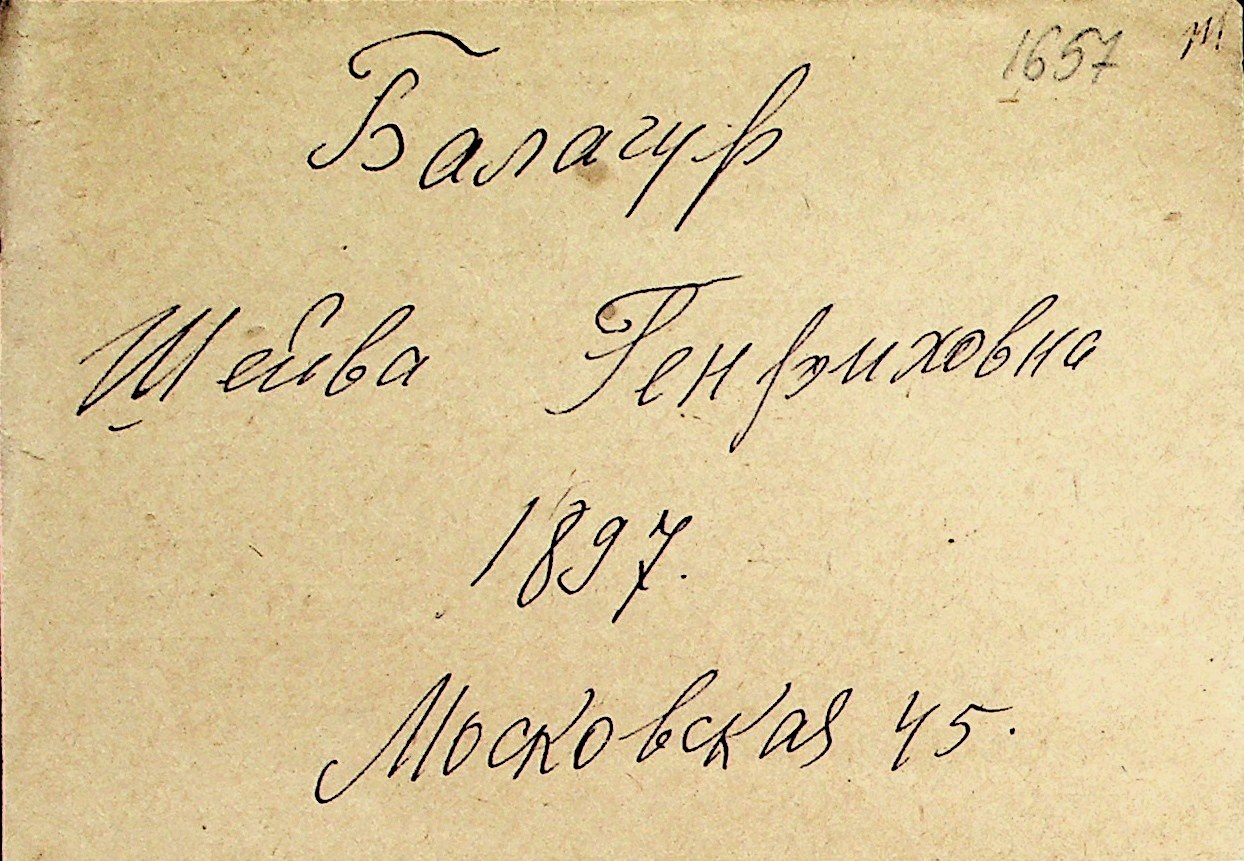 1657
Балагур
Шейва Генриховна
1897.
Московская 45.